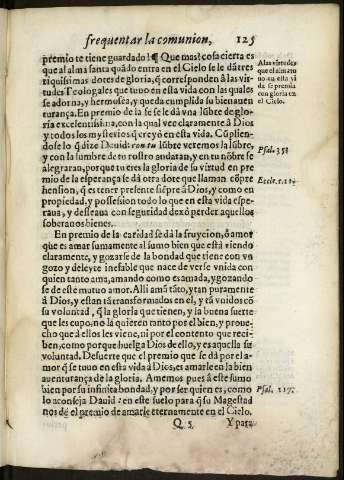 frequentar la comunion, 125
premio te tiene guardado! ¶ Que mas! cosa cierta es
que al alma santa quãdo entra en el Cielo se le dã tres
riquissimas dotes de gloria, q̃ corresponden â las vir-
tudes Teologales que tuuo en esta vida con las quales
se adorna, y hermosea, y queda cumplida su bienauen
turança. En premio de la fe se le dà vna lũbre de glo-
ria excelentissima, con la qual vee claramente â Dios
y todos los mysterios q̃ creyó en esta vida. Cũplien-
dose lo q̃ dize Dauid: con tu lũbre veremos la lũbre,
y con la lumbre de tu rostro andaran, y en tu nõbre se
alegraran, porque tu eres la gloria de su virtud en pre
mio de la esperança se dà otra dote que llaman cõpre
hension, q̃ es tener presente siẽpre â Dios, y como en
propiedad, y possession todo lo que en esta vida espe-
raua, y desseaua con seguridad de no perder aquellos
soberanos bienes.
En premio de la caridad se dà la fruycion, ô amor
que es amar sumamente al sumo bien que està viendo
claramente, y gozarse de la bondad que tiene con vn
gozo y deleyte inefable que nace de verse vnida con
quien tanto ama, amando como es amada, y gozando
se de este mutuo amor. Alli amã tãto, y tan puramente
â Dios, y estan tã transformados en el, y tã vnidos cõ
su voluntad, q̃ la gloria que tienen, y la buena suerte
que les cupo, no la quieren tanto por el bien, y proue-
cho que â ellos les viene, ni por el contento que reci-
ben, como porque huelga Dios de ello, y es aquella su
voluntad. De suerte que el premio que se dà por el a-
mor q̃ se tuuo en esta vida â Dios, es amarle en la bien
auenturança de la gloria. Amemos pues â este sumo
bien por su infinita bondad, y por ser quien es, como
lo aconseja Dauid: en este suelo para q̃ su Magestad
nos dé el premio de amarle eternamente en el Cielo.
Q 5. Y para
A las virtudes
que el alma tu
uo en esta vi
da se premia
con gloria en
el Cielo.
Psal. 35.
Psal. 117.